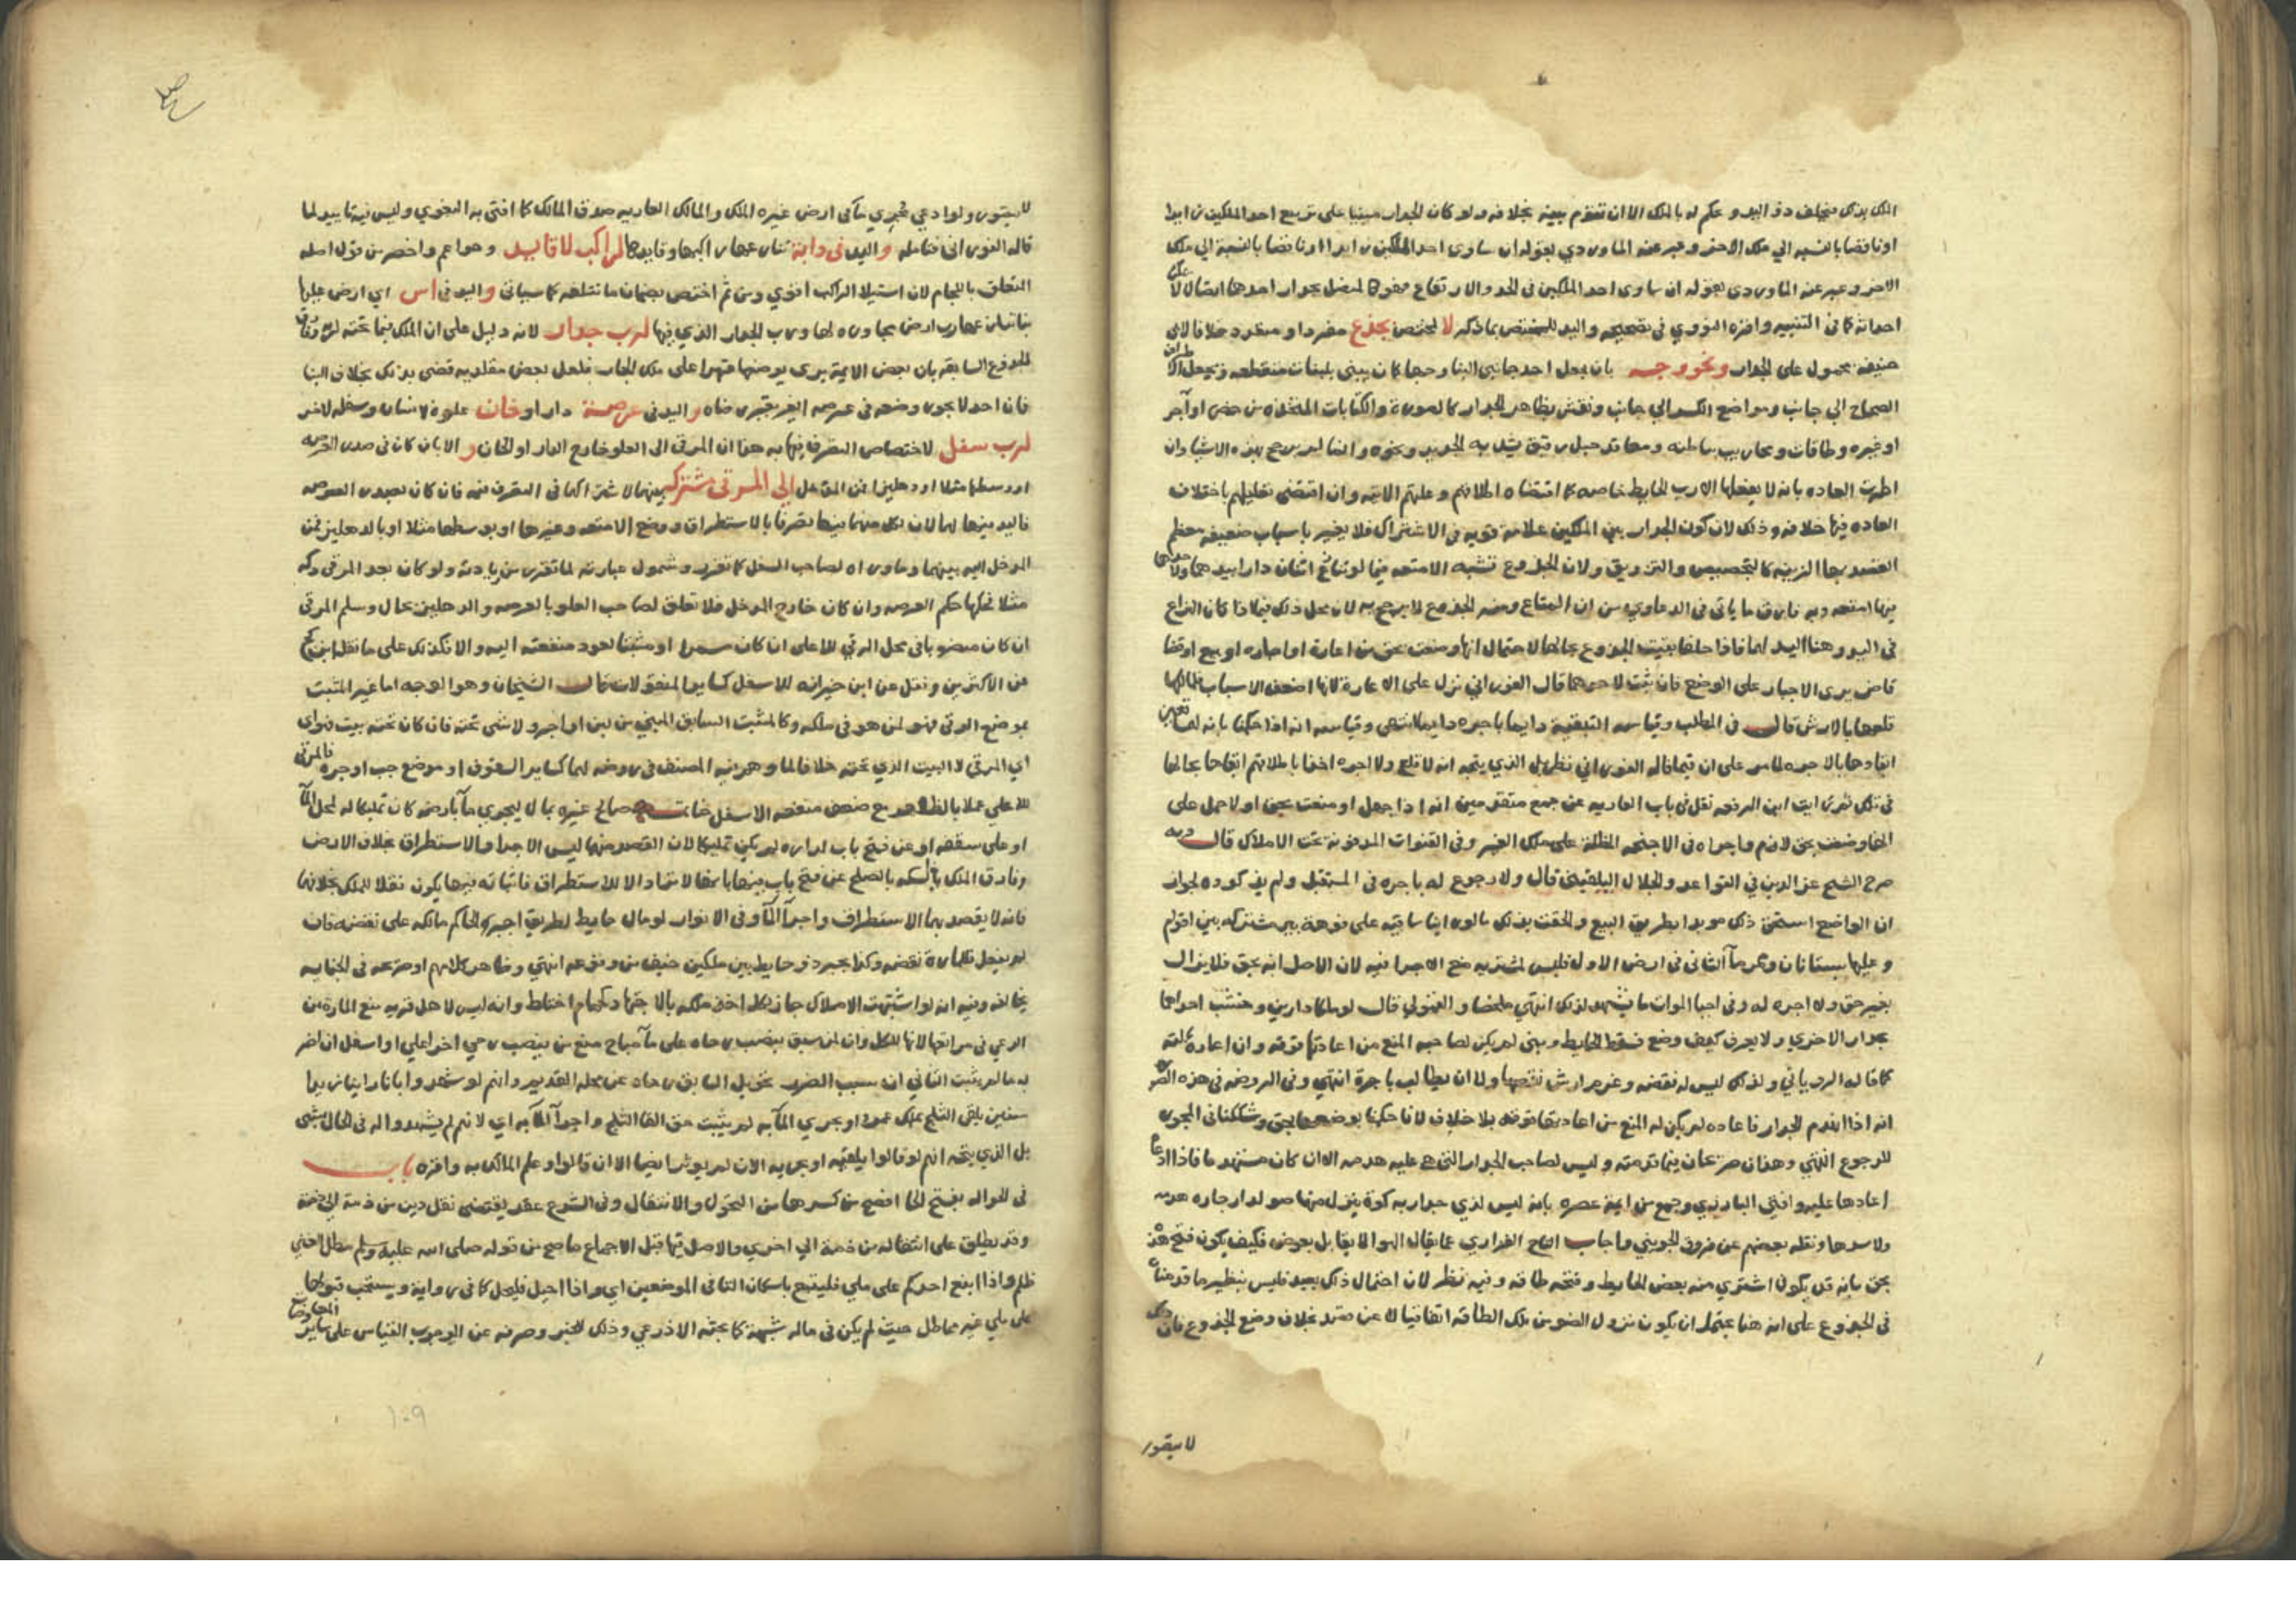 الملك بذلك فيحلف ذو اليد وحكم له بالملك الا ان تقوم بينه بخلافه ولو كان الجدار مبنيا على تربيع احد الملكين زايدا
او ناقصا بالنسبه الي ملك الاخر وعبر عنه الماوردي بقوله ان ساوى احد الملكين زايدا او ناقصا بالنسبة الي ملك
الاخر وعبر عنه الماوردي بقوله ان ساوى احد الملكين في الحد والارتفاع
احداثه كما في التنبيه واقره النووي في تصحيحه واليد للمختص بما ذكر لا لمختص بجذع مفردا او متعدد خلافا لابي
حنيفه محمول على الجدار ونحو وجه بان يجعل احد جانبي البنا وجها كان يبني بلبنات منقطعه ويجعل
الصحاح الي جانب ومواضع الكسر الي جانب ونقش بظاهر الجدار كالصورة والكتابات المتخذه من جص او آجر
او غيره وطاقات ومحاريب بباطنه ومعاقد حبل رقيق يشد به الجريد ونحوه وانما لم يرجح بهذه الاشيا وان
اطردت العاده بانه لا يفعلها الا رب الحايط خاصه كما اقتضاه اطلاقهم وعلتهم الاتيه وان اقتضى تعليلهم باختلاف
العاده فيها خلافه وذلك لان كون الجدار بين الملكين علامة قويه في الاشتراك فلا يغير باسباب ضعيفه معظم
القصد بها الزينه كالتجصيص والتزويق ولان الجذوع تشبه الامتعه فيما لو تنازع اثنان دارا بيدهما ولاحدهما
فيها امتعه وبه فارق ما ياتي في الدعاوي من ان المتاع ومنه الجذوع لا يرجح به لان محل ذلك فيما اذا كان النزاع
في اليد وهنا اليد لهما فاذا حلفا بقيت الجذوع بحالها لاحتمال انها وضعت بحق من اعارة او اجاره او بيع او قضا
قاض يرى الاجبار على الوضع فان ثبت لاحدهما قال الفوراني نزل على الاعارة لانها اضعف الاسباب
قلعها بالارش قال في المطلب وقياسه التبقيه دايما باجره دايما انتهى وقياسه انه اذا حكمنا بانه لهما
ابقاءها بالاجره لما مر على ان فيما قاله الفوراني نظر بل الذي يتجه انه لا قلع ولا اجره اخذا باطلاقهم ابقاءها بحالها
في ذلك ثم رايت ابن الرفعه نقل في باب العاريه عن جمع متقدمين انه اذا جهل او وضعت بحق اولا حمل على
انها وضعت بحق لازم واجراه في الاجنحه المطلة على ملك الغير وفي القنوات المدفونة تحت الاملاك قال وبه
صرح الشيخ عز الدين في القواعد والجلال البلقيني قال ولا رجوع له باجره في المستقبل ولم يذكروه لجواز
ان الواضع استحق ذلك موبدا بطريق البيع والحقت بذلك ما لو راينا ساقيه على فوهة بير مشتركه بين اقوام
وعليها بستانان وممر مآ الثاني في ارض الاول فليس لمشتريه منع الاجرا فيه لان الاصل انه بحق فلا يزال
بغير حق ولا اجره له وفي احيا الموات ما يشهد لذلك انتهي ملخصا والقمولي قال لو ملكا دارين وخشب احداهما
بجدار الاخرى ولا يعرف كيف وضع فسقط الحايط وبني لم يكن لصاحبه المنع من اعادتها فوقه وان اعاده بالته
كما قاله الروياني ولذلك ليس له نقضه وغرم ارش نقصها ولا ان يطالب باجرة انتهي وفي الروضه في هذه
انه اذا انهدم الجدار فاعاده لم يكن له المنع من اعادتها فوقه بلا خلاف لانا حكمنا بوضعها بحق وشككنا في المجوز
للرجوع انتهي وهذان صريحان فيما قدمته وليس لصاحب الجدار التي هي عليه هدمه الا ان كان مستهدما فاذا
اعادها عليه وافتي البارزي وجمع من ايمة عصره بانه ليس لذي جدار به كوة ينزل منها ضو لدار جاره هدمه
ولا سدها ونقله بعضهم عن فروق الجويني واجاب التاج الفزاري عما يقال الهوا لا يقابل بعوض فكيف يكون فتح
بحق بانه قد يكون اشتري منه بعض الحايط وفتحه طاقه وفيه نظر لان احتمال ذلك بعيد فليس بنظير ما قدمناه
في الجذوع على انه هنا يحتمل ان يكون نزول الضو من تلك الطاقه اتفاقيا لا عن قصد بخلاف وضع الجذوع فان
لا يتقوز
لا يتقوز ولو ادعي مجري مآ في ارض غيره الملك والمالك العاريه صدق المالك كما افتى به البغوي وليس فيه تاييد لما
قاله الفوراني فتامله واليد في دابة تنازعها راكبها وقايدها لراكب لا قايد وهو اعم واخصر من قول اصله
المتعلق باللجام لان استيلا الراكب اقوي ومن ثم اختص بضمان ما تتلفه كما سياتي واليد في اس اي ارض عليها
بنا تنازعها رب ارض مجاوره لها ورب الجدار الذي فيها لرب جدار لانه دليل على ان الملك فيما تحته له وفارق
الجذوع السابقه بان بعض الايمة يرى بوضعها قهرا على ملك الجار فلعل بعض مقلديه قضى بذلك بخلاف البنا
فان احد لا يجوز وضعه في عرصه الغير بغير رضاه واليد في عرصة دار او خان علوه لانسان وسفله لاخر
لرب سفل لاختصاص التصرف فيها به هذا ان المرقى الى العلو خارج الدار او الخان والا بان كان في صدر العرصه
او وسطها مثلا او دهليزا فمن المدخل الي المرقى مشترك بينهما لاشتراكهما في التصرف فيه فان كان بصدر العرصه
فاليد فيها لهما لان لكل منهما فيها تصرفا بالاستطراق ووضع الامتعه وغيرها او بوسطها مثلا او بالدهليز فمن
المدخل اليه بينهما وما وراه لصاحب السفل كما تقرر وشمول عبارته لما تقرر من زيادته ولو كان نحو المرقى دكه
مثلا فحكمها حكم العرصه وان كان خارج المدخل فلا تعلق لصاحب العلو بالعرصه والدهليز بحال وسلم المرقى
ان كان منصوبا في محل الرقي للاعلى ان كان مسمرا او مثبتا لعود منفعته اليه والا فكذلك على ما نقله ابن كج
عن الاكثرين ونقل عن ابن خيران انه للاسفل كساير المنقولات قال الشيخان وهو الوجه اما غير المثبت
بموضع المرقى فهو لمن هو في ملكه وكالمثبت السابق المبني من لبن او آجر ولا شي تحته فان كان تحته بيت فهو اي
اي المرقى لا البيت الذي تحته خلافا لما وهم فيه المصنف في روضه لهما كساير السقوف او موضع جب او جره فالمرقى
للاعلي عملا بالظاهر مع ضعف منفعه الاسفل خاتمة صالح غيره بمال ليجري مآ بارضه كان تمليكا له لمحل المآ
او على سقفه او عن فتح باب لداره لم يكن تمليكا لان القصد منهما ليس الا اجرا والاستطراق بخلاف الارض
فانه لا يقصد بهما الا ستطراق واجرآ المآ وفي الانوار لو مال حايط لطريق اجبر الحاكم مالكه على نقضه فان
لم يفعل فللمارة نقضه وكذا يجبر ذو حايط بين ملكين خيف من وقوعه انتهي وظاهر كلامهم او صريحه في الجنايه
يخالفه وفيه انه لو اشتبهت الاملاك جاز لكل اخذ ملكه بالاجتهاد كحمام اختلط وانه ليس لاهل قريه منع المارة من
الرعي في مراتعها لانها للكل وان لمن سبق بنصب رحاه على مآ مباح منع من ينصب رحي اخر اعلي او اسفل ان اضر
به ما لم يثبت الثاني ان سبب الضرر تحويل السابق رحاه عن محله القديم وانهم لو شهدوا بانا راينا زيدا
سنين يلقي الثلج بملك عمرو او يجري المآ به لم يثبت حق القا الثلج واجرآ المآ به اي لانهم لم يشهدوا له في الحال بشي
بل الذي يتجه انهم لو قالوا يلقيه او يجريه الان لم يوثر ايضا الا ان قالوا وعلم المالك به واقره باب
في الحواله بفتح الحا افصح من كسرها من التحول والانتقال وفي الشرع عقد يقتضى نقل دين من ذمة الي ذمة
وقد يطلق على انتقاله من ذمة الي اخري والاصل فيها قبل الاجماع ما صح من قوله صلى الله عليه وسلم مطل الغني
ظلم واذا اتبع احدكم على ملي فليتبع باسكان التا في الموضعين اي واذا احيل فليحل كما في رواية ويستحب قبولها
على ملي غير مماطل حيث لم يكن في ماله شبهة كما بحثه الاذرعي وذلك للخبر وصرفه عن الوجوب القياس على ساير المعاوضات
١٠٩